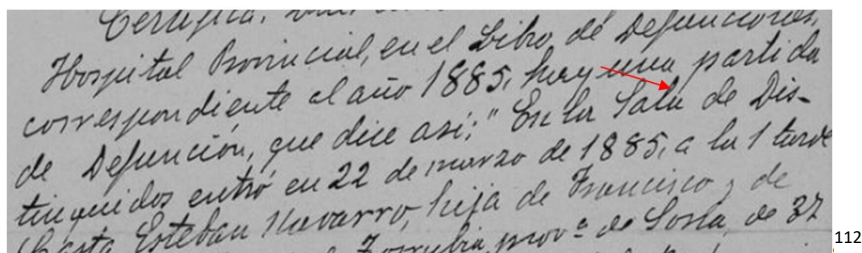 Certifica,
Hospital Provincial, en el Libro de Defunciones,
correspondiente al año 1885, hay una partida
de Defunción, que dice así; "En la Sala de Dis-
tinguidos entró en 22 de marzo de 1885, a la 1 tarde
Casta Esteban Navarro, hija de Francisco y de
Torrubia, prov.ª de Soria, de 37
112